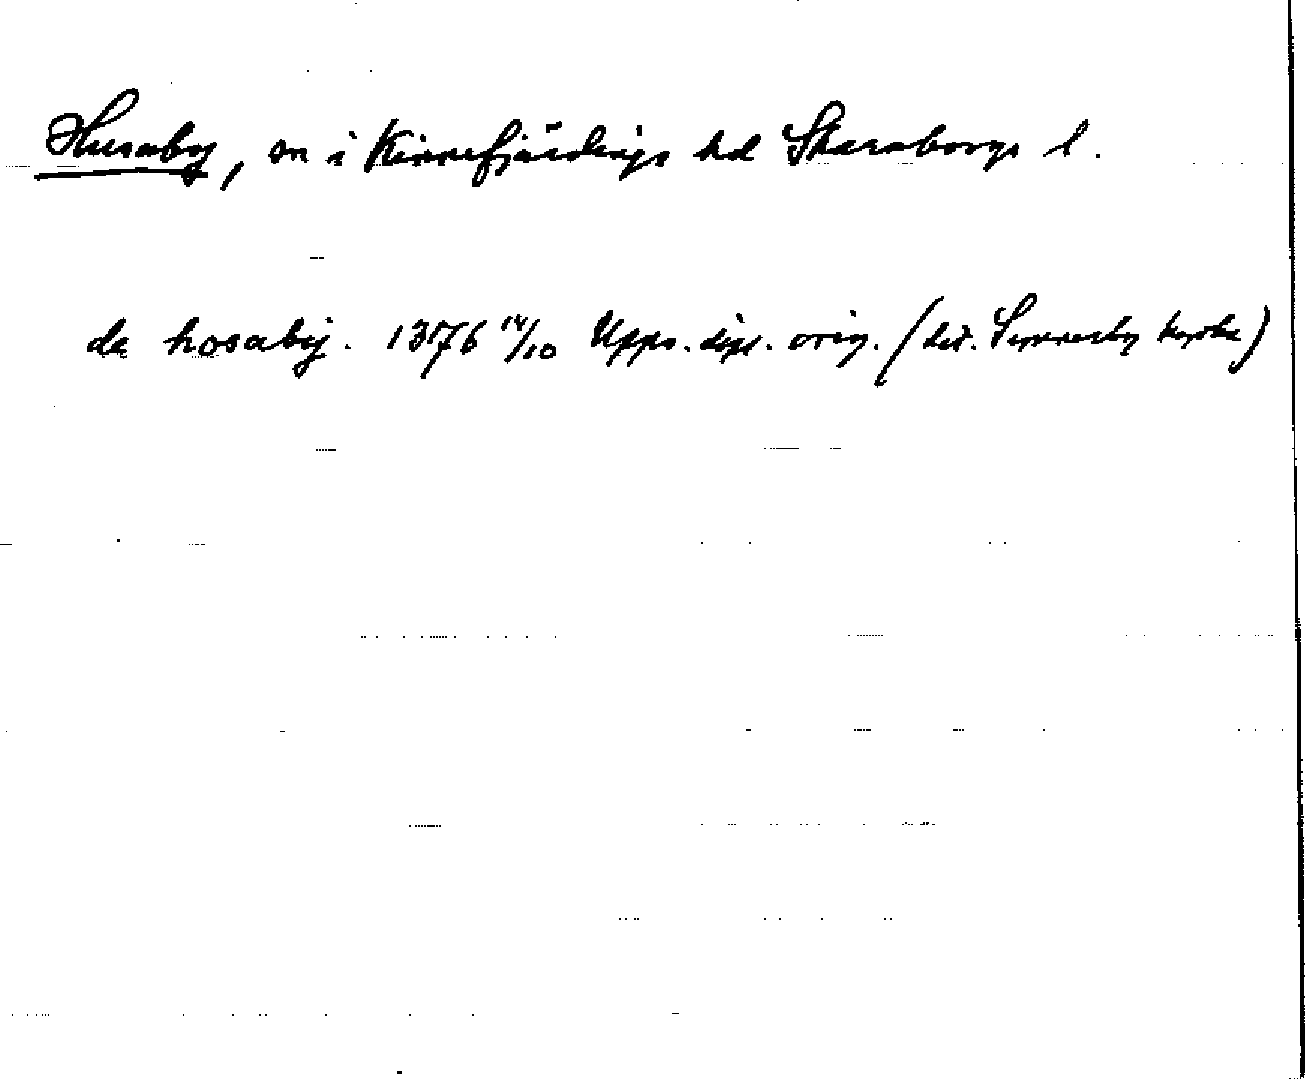 Husaby, sn i Kinnefjärdings hd Skaraborgs l.
de hosabij. 1376 14/10 Upps. dipl. orig. (dit. kyrka)